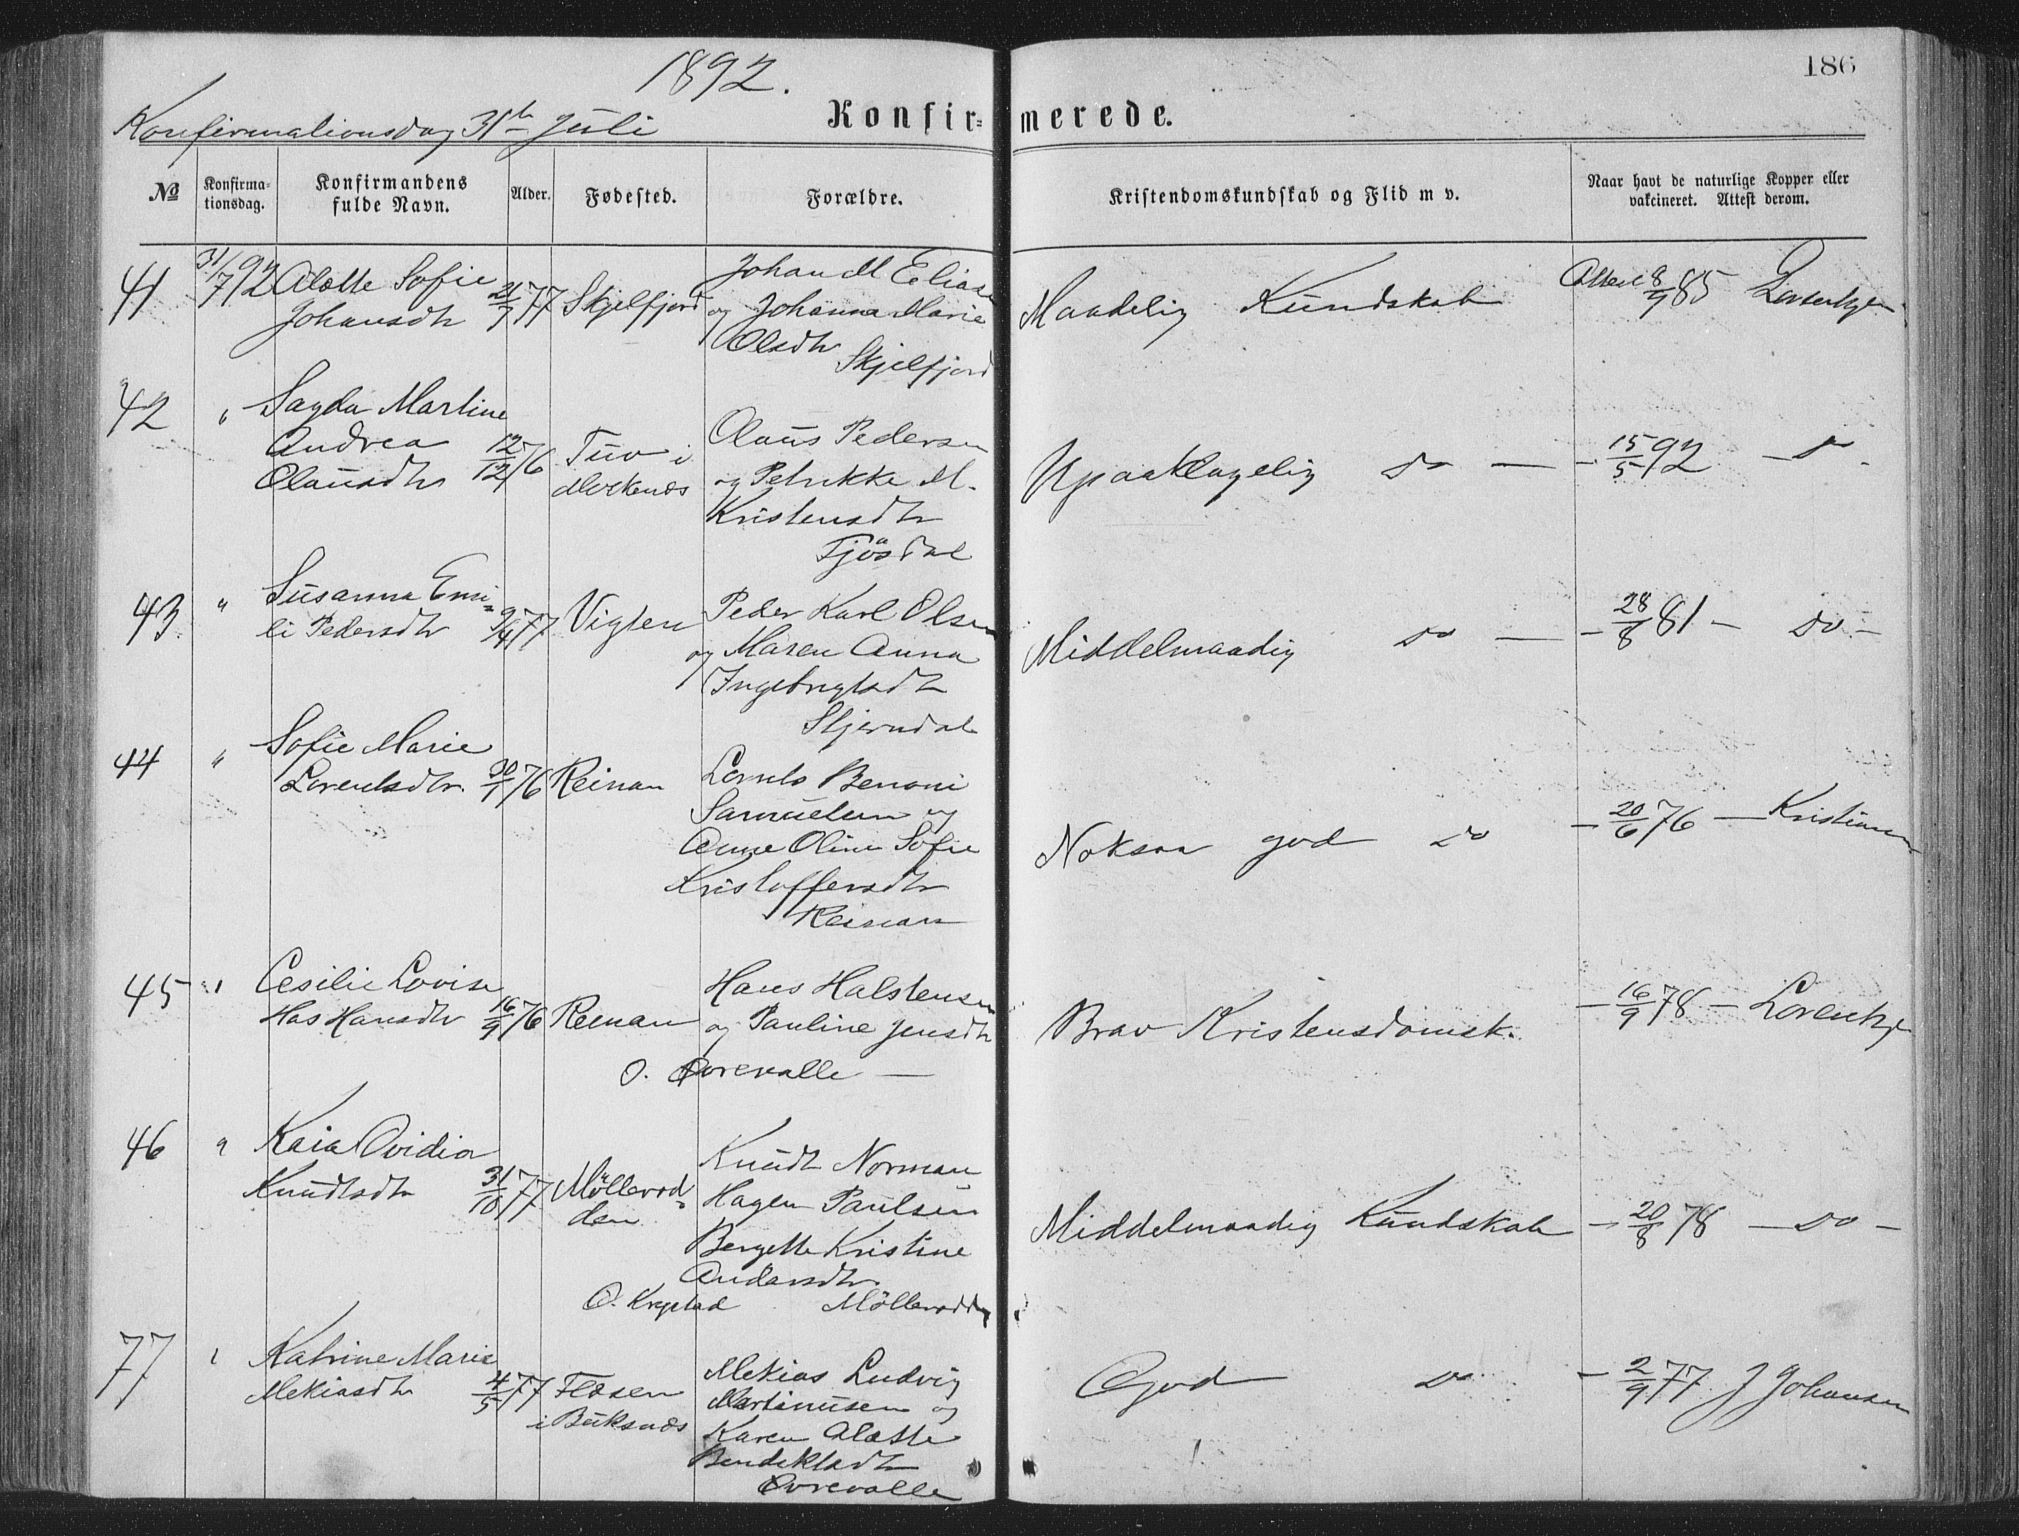 1892.
186
Konfirmationsdag 31te Juli
Konfir= merede.
№
Konfirma=
tionsdag.
Konfirmandens
fulde Navn.
Alder.
Fødested.
Forældre.
Kristendomskundskab og Flid m v.
Naar havt de naturlige Kopper eller
vakcineret. Attest derom.
41 31/7 92 Alette Sofie
Johansdtr 21/7 77 Skjelfjord
Johan M Eliasen
og Johanna Marie
Olsdtr
Skjelfjord
Maadelig Kundskab Attest 8/9 85
42 " Sagda Martine
Andrea
Olausdtr 12/12 76 Tuv i
Olaus Pedersen
og Petrikke M.
Kristensdtr
Tjösdal
Upaaklagelig do — - 15/5 92 — do -
43 " Susanna Emi=
li Pedersdtr 9/4 77 Vigten
Peder Karl Olsen
og Maren Anna
Ingebrigtsdtr
Stjerndal
Middelmaadig do — - 28/8 81 — do -
44 " Sofie Marie
Lorentsdtr 30/1 76 Reinan
Lornts Benoni
Samuelsen og
Anne Oline Sofie
Kristoffersdtr
Reinan
Noksaa god do - 20/6 76 — Kristiansen
45 " Cesilie Lovise
Has Hansdtr 16/9 76 Reinan
Hans Halstensen
og Pauline Jensdtr
O. Evrevalle —
Brav Kristensdomsk. - 16/9 78 —
46 " Kaia Ovidia
Knudtsdtr 31/10 77 Möllerod=
den
Knudt Norman
Hagen Paulsen
Bergette Kristine
Andersdtr
O. Krystad Möllerodden
Middelmaadig Kundskab - 20/8 78 — do -
77 " Katrine Marie
Mekiasdtr 4/5 77 Flæsen
i Buksnæs
Mekias Ludvig
Martinusen og
Karen Alette
Bendiktsdtr
Evrevalle
God do - 2/9 77 J Johansen